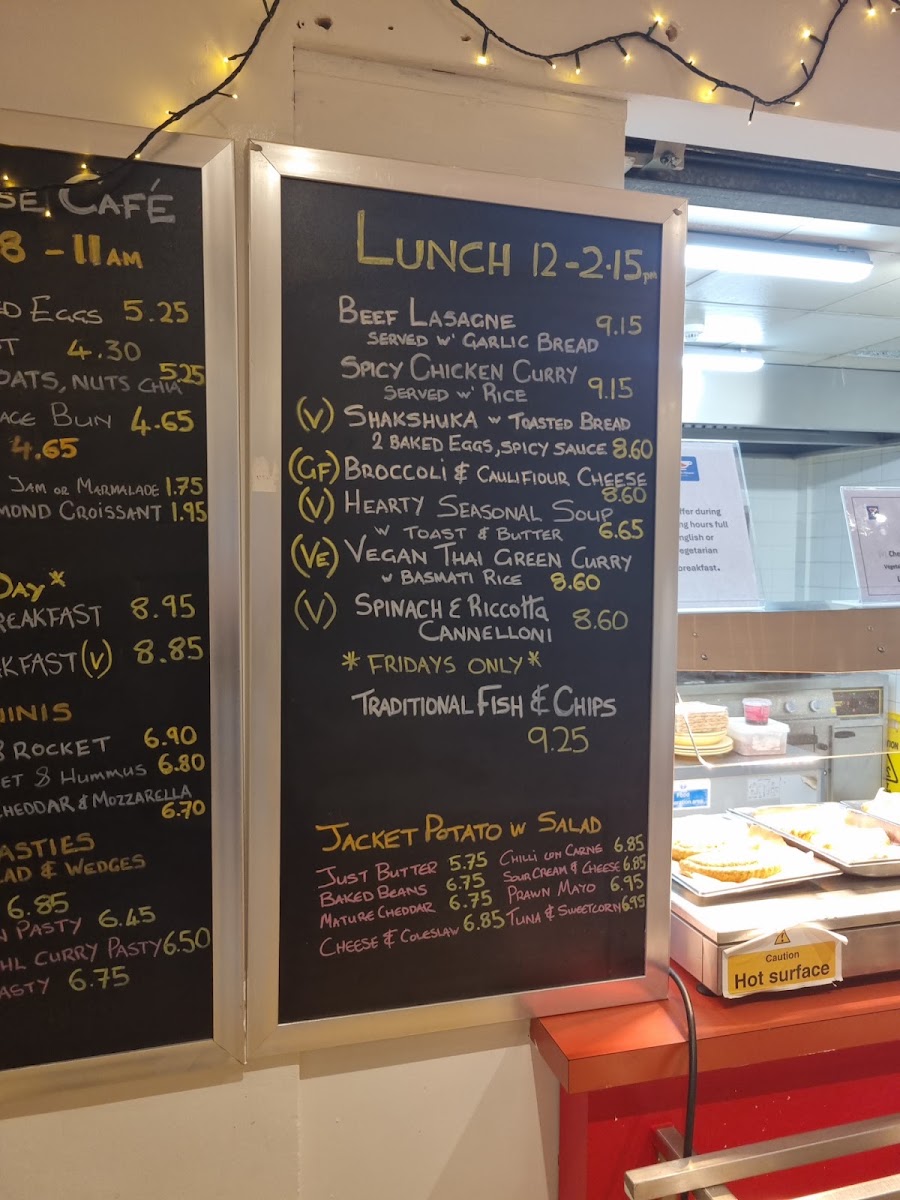 SE CAFÉ
8 - 11 AM
ED EGGS 5.25
4.30
OATS, NUTS CHIA 5.25
AGE BUN 4.65
4.65
JAM OR MARMALADE 1.75
MOND CROISSANT 1.95
DAY*
REAKFAST 8.95
KFAST (V) 8.85
INIS
& ROCKET 6.90
ET & HUMMUS 6.80
CHEDDAR & MOZZARELLA
6.70
ASTIES
LAD & WEDGES
6.85
N PASTY 6.45
HL CURRY PASTY 6.50
ASTY 6.75
LUNCH 12-2.15pm
BEEF LASAGNE 9.15
SERVED W' GARLIC BREAD
SPICY CHICKEN CURRY
SERVED W' RICE 9.15
(V) SHAKSHUKA W TOASTED BREAD
2 BAKED EGGS, SPICY SAUCE 8.60
(GF) BROCCOLI & CAULIFIOUR CHEESE
8.60
(V) HEARTY SEASONAL SOUP
W TOAST & BUTTER 6.65
(VE) VEGAN THAI GREEN CURRY
W BASMATI RICE 8.60
(V) SPINACH & RICCOTTA
CANNELLONI 8.60
*FRIDAYS ONLY*
TRADITIONAL FISH & CHIPS
9.25
JACKET POTATO W SALAD
JUST BUTTER 5.75
BAKED BEANS 6.75
MATURE CHEDDAR 6.75
CHEESE & COLESLAW 6.85
CHILLI CON CARNE 6.85
SOUR CREAM & CHEESE 6.85
PRAWN MAYO 6.95
TUNA & SWEETCORN 6.95
ffer during
ng hours full
nglish or
egetarian
breakfast.
Caution
Hot surface